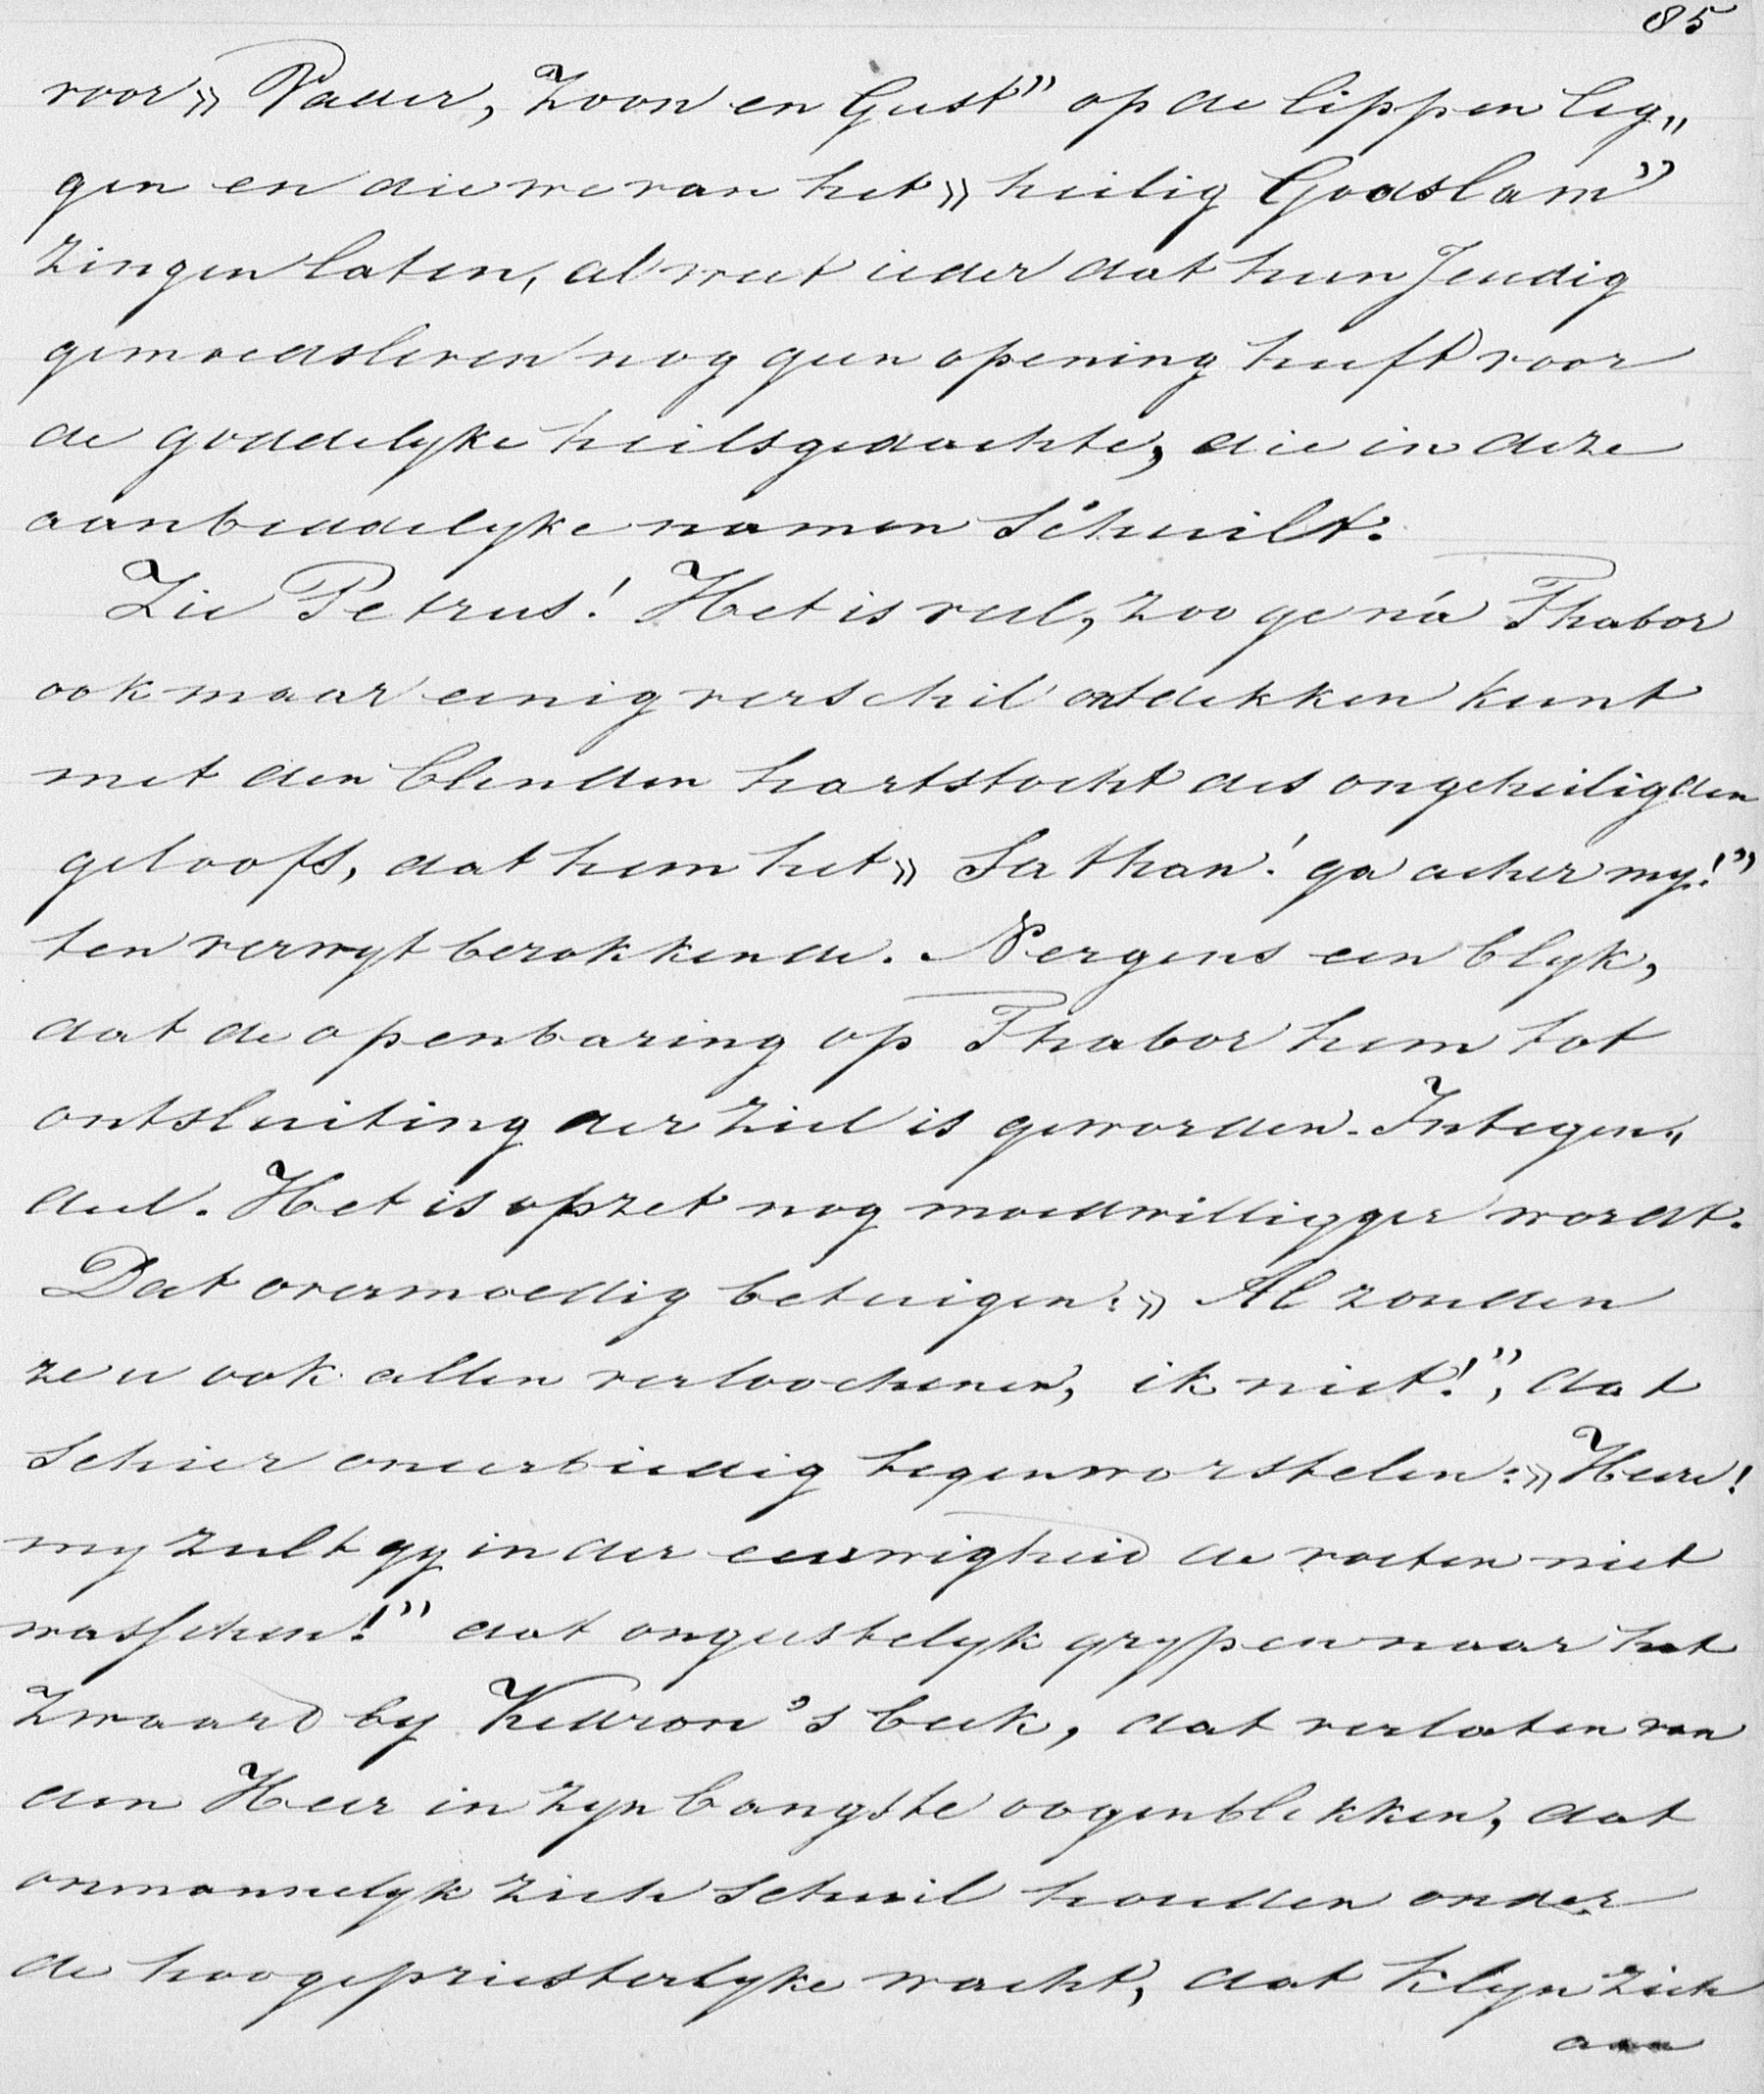 85
voor „Vader, Zoon en Geest” op de lippen leg„
gen en die we van het „heilig Godslam”
zingen laten, al weet ieder dat hun jeudig
gemoedsleven nog geen opening heeft voor
de goddelyke heilsgedachte, die in deze
aanbiddelyke namen schuilt.
Zie Petrus! Het is veel, zoo ge ná Thabor
ook maar eenig verschil ontdekken kunt
met den blinden hartstocht des ongeheiligden
geloofs, dat hem het „Sathan! ga achter my!”
ten verwyt berokkende. Nergens een blyk,
dat de openbaring op Thabor hem tot
ontsluiting der ziel is geworden. Integen„
deel. Het is opzet nog moedwilligger wordt.
Dat overmoedig betuigen: „Al zouden
ze u ook allen verloochenen, ik niet!”, dat
schier oneerbiedig tegenworstelen: „Heere!
my zult gy in der eeuwigheid de voeten niet
wasschen!” dat ongeestelyk grypen naar het
zwaard by Kedron's beek, dat verlaten van
den Heer in zyn bangste oogenblikken, dat
onmannelyk zich schuil houden onder
de hoogepriesterlyke wacht, dat klyn zich
aan